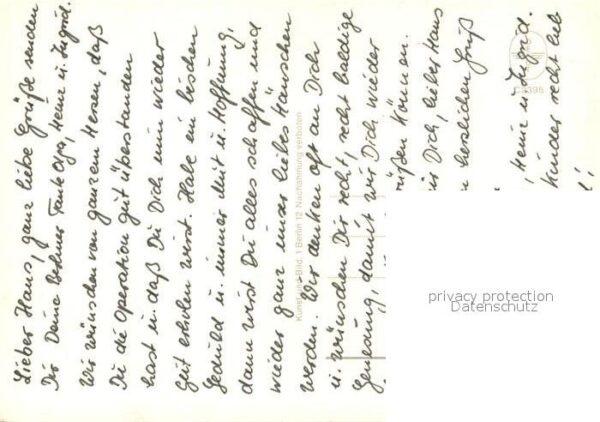 Lieber Haus, ganz liebe Grüße senden
Dir Deine Berliner Tante Olga, Heinz u. Ingrid.
Wir wünschen von ganzem Herzen, daß
Du die Operation gut überstanden
hast u. daß Du Dich nun wieder
gut erholen wirst. Habe ein bischen
Geduld u. immer Mut u. Hoffnung,
dann wirst Du alles schaffen und
wieder ganz unser liebes Hänschen
werden. Wir denken oft an Dich
u. wünschen Dir recht, recht baldige
Genesung, damit wir Dich wieder
können.
Dich, lieber Hans
herzlichen Gruß
Heinz u. Ingrid.
Kinder recht lieb
Kunst und Bild, 1 Berlin 12 Nachahmung verboten
C3395
privacy protection
Datenschutz